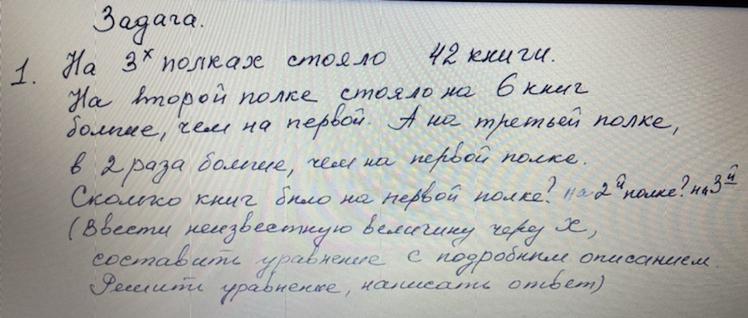 Задача.
1. На 3х полках стояло 42 книги.
На второй полке стояло на 6 книг
больше, чем на первой. А на третьей полке,
в 2 раза больше, чем на первой полке.
Сколько книг было на первой полке? на 2й полке? на 3й
(Ввести неизвестную величину через х,
составить уравнение с подробным описанием.
Решить уравнение, написать ответ)